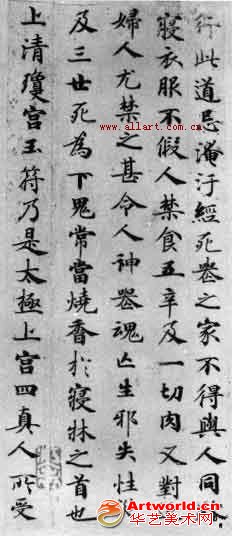 行此道忌淹汙經死喪之家不得與人同
寢衣服不假人禁食五辛及一切肉又對
婦人尤禁之甚令人神喪魂亡生邪失性
及三世死為下鬼常當燒香於寢牀之首也
上清瓊宮玉符乃是太極上宮四真人所受
www.allart.com.cn
Artworld.cn
华艺美术网